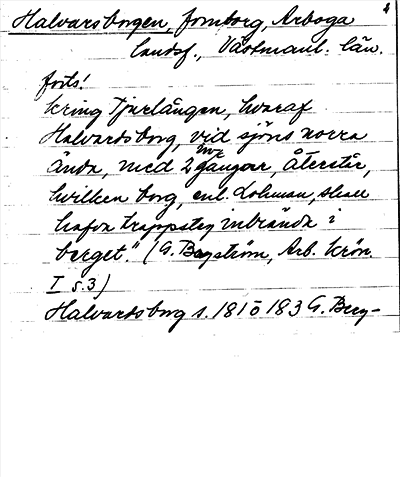 4
Halvarsborgen, fornborg, Arboga
landsf., Västmanl. län.
forts!
kring Tjurlången, hvaraf
Halvardsborg, vid sjöns norra
ända, med 2 gångar, återstår,
hvilken borg, enl. Lohman, skall
hafva trappsteg inbrända i
berget." (G. Bergström, Arb. krön.
I s. 3)
Halvardsborg s. 181 o 183 G. Berg-